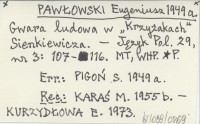 PAWŁOWSKI Eugeniusz 1949 a.
Gwara ludowa w „Krzyżakach"
Sienkiewicza. — Język Pol. 29,
nr 3: 107-116. MT, WHP. *P.
Err.: PIGOŃ S. 1949 a.
Res.: KARAŚ M. 1955 b. —
KURZYDŁOWA E. 1973.